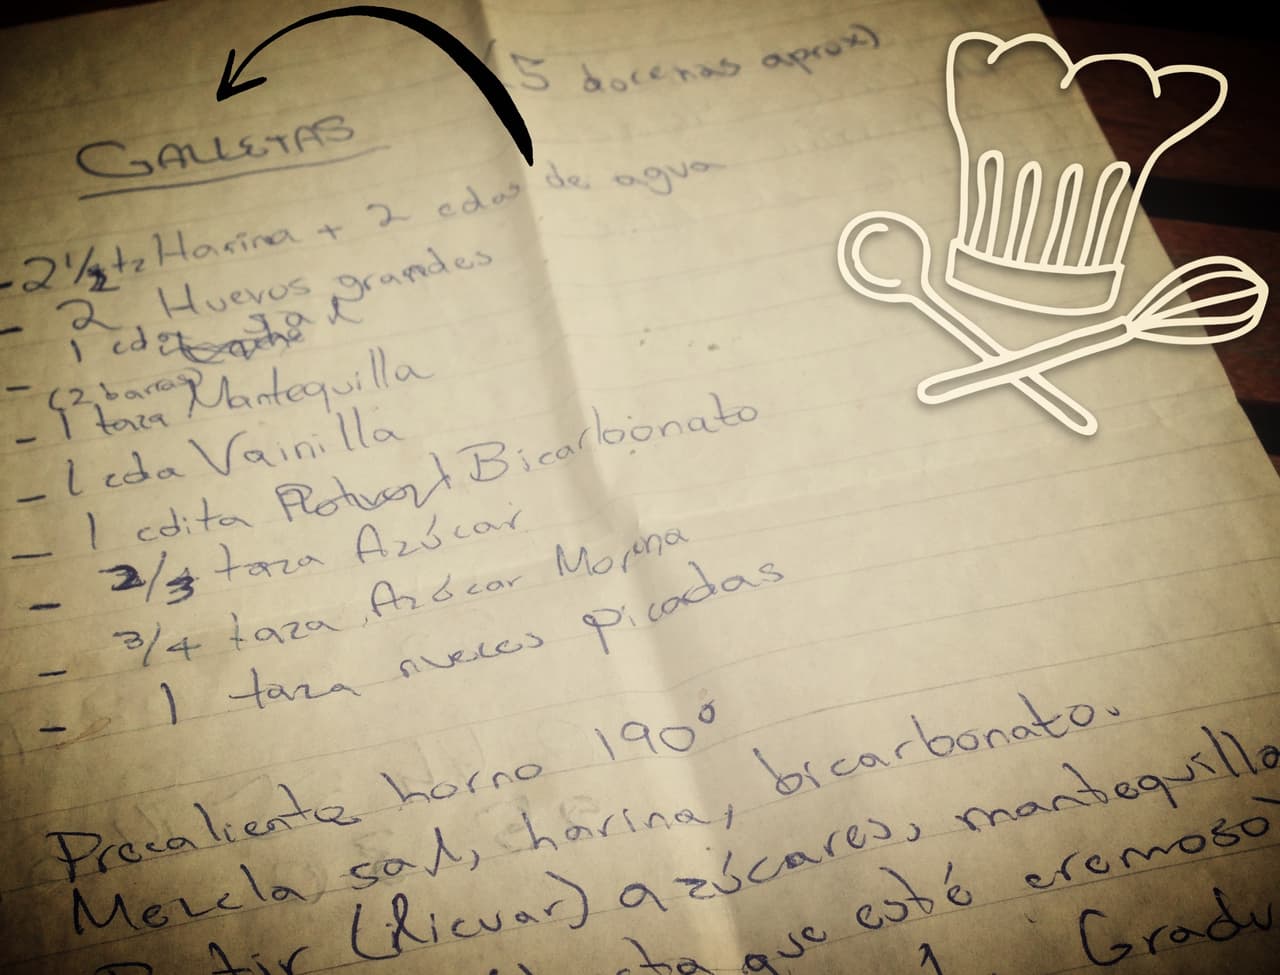 (5 docenas aprox)
GALLETAS
- 2 1/2 tz Harina + 2 cdas de agua
- 2 Huevos grandes
- 1 cdita sal
(2 barras)
- 1 taza Mantequilla
- 1 cda Vainilla
- 1 cdita Bicarbonato
- 2/3 taza Azúcar
- 3/4 taza Azúcar Morena
- 1 taza nueces picadas
Precaliente horno 190°
Mezcla sal, harina, bicarbonato.
Batir (licuar) azúcares, mantequilla
que esté cremoso
Gradu